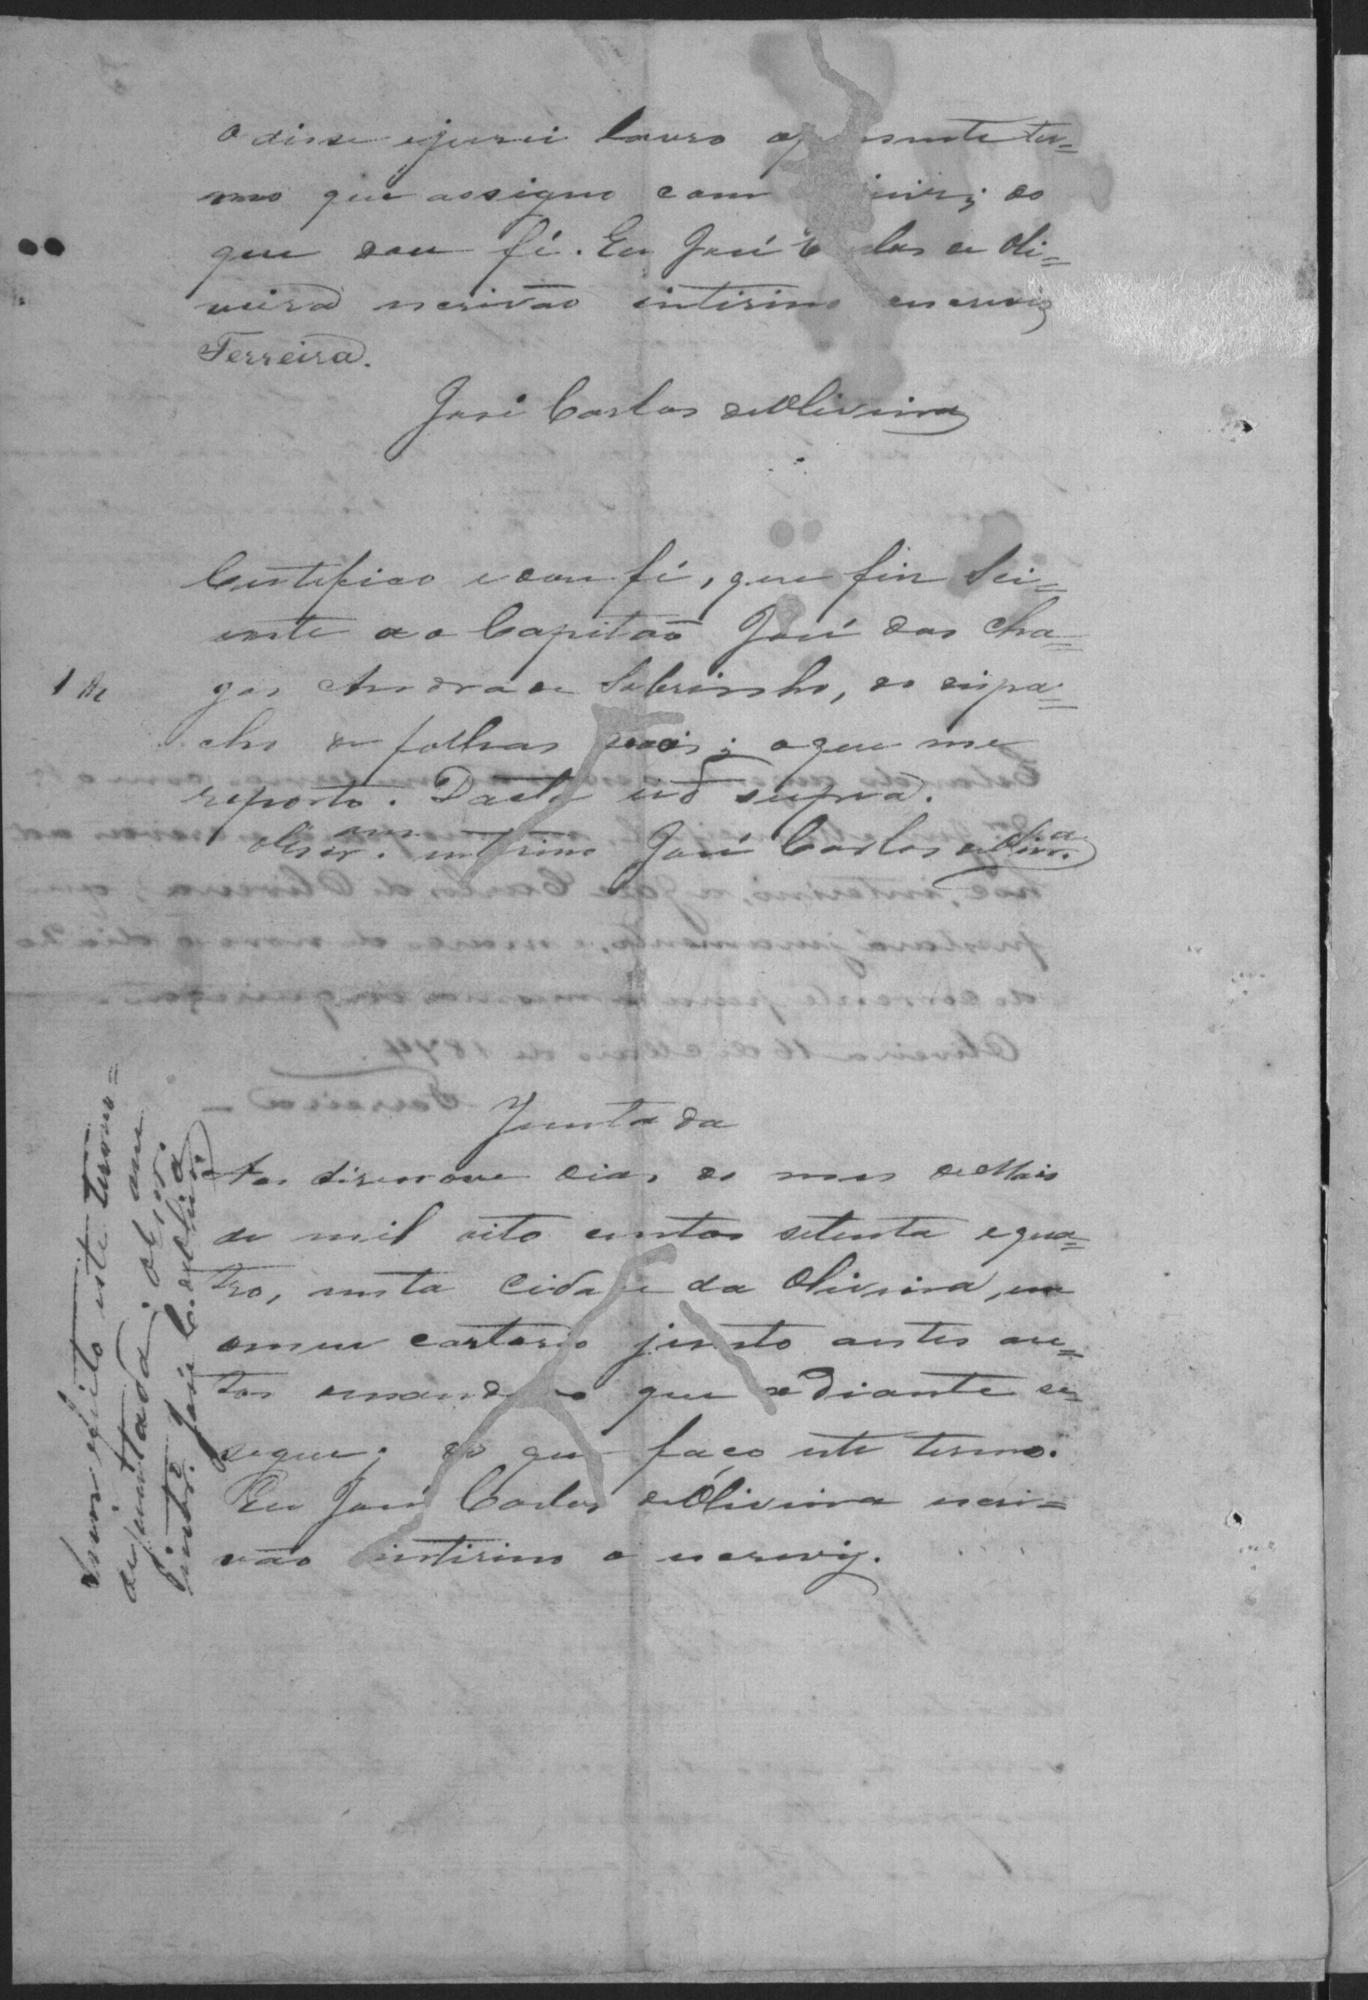 o disse e jurei lavro o presente ter=
mo que assigno com juiz; do
que dou fé. Eu José Carlos de Oli=
veira escrivão intirino escrevi
Ferreira.
José Carlos de Oliveira
Certefico e dou fé, que fiz Sci=
ente ao Capitão José das Cha=
gas Andrade Sobrinho, do dispa=
cho de folhas ; o que me
reporto. Dacta ud supra.
O Escr. intirino José Carlos de Olivra.
Juntada
Aos disenove dias do mes de Maio
de mil oito centos setenta e qua=
tro, nesta Cidade da Oliveira, em
o meu cartorio junto antes au=
tos o mandado que adiante se
segue; do que faço este termo.
Eu José Carlos de Oliveira escri=
vão intirino o escrevij.
Sem efeito este termo=
de juntada; o Escr.
José C. de Olivra